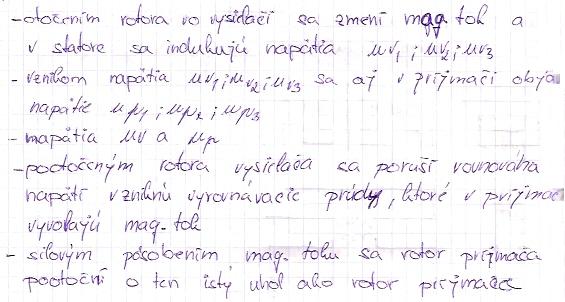 -otočením rotora vo vysielači sa zmení mag tok a
v statore sa indukujú napätia uv1; uv2; uv3
- vznikom napätia uv1; uv2; uv3 sa aj v prijmači obja
napätie up1; up2; up3
- napätia uv a up
-pootočným rotora vysielača sa poruší rovnováha
napätí vzniknú vyrovnávacie prúdy, ktoré v prijmač
vyvolajú mag. tok
- silovým pôsobením mag. toku sa rotor prijmača
pootočí o ten istý uhol ako rotor prijmača